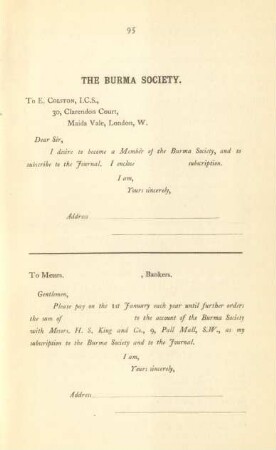 95
THE BURMA SOCIETY.
To E. Colston, I.C.S.,
30, Clarendon Court,
Maida Vale, London, W.
Dear Sir,
I desire to become a Member of the Burma Society, and to
subscribe to the Journal. I enclose subscription.
I am,
Yours sincerely,
Address
To Messrs. , Bankers.
Gentlemen,
Please pay on the 1st January each year until further orders
the sum of to the account of the Burma Society
with Messrs. H. S. King and Co., 9, Pall Mall, S.W., as my
subscription to the Burma Society and to the Journal.
I am,
Yours sincerely,
Address